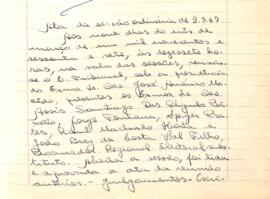 Ata da sessão ordinária de 9.3.67
Aos nove dias do mês de
março de um mil novecentos e
sessenta e sete, às dezessete ho-
ras, na sala das sessões, reuniu-
se o E. Tribunal, sob a presidência
do Exmo. Sr. Des. José Américo Ma-
cêdo, presentes os Exmos. Srs. Drs.
Assis Santiago, Des.
Jorge Fontana,
Raul Machado Horta e
João Braz da Costa Val Filho,
Procurador Regional Eleitoral subs-
tituto. Aberta a sessão, foi lida
e aprovada a ata da reunião
anterior. - Julgamentos -